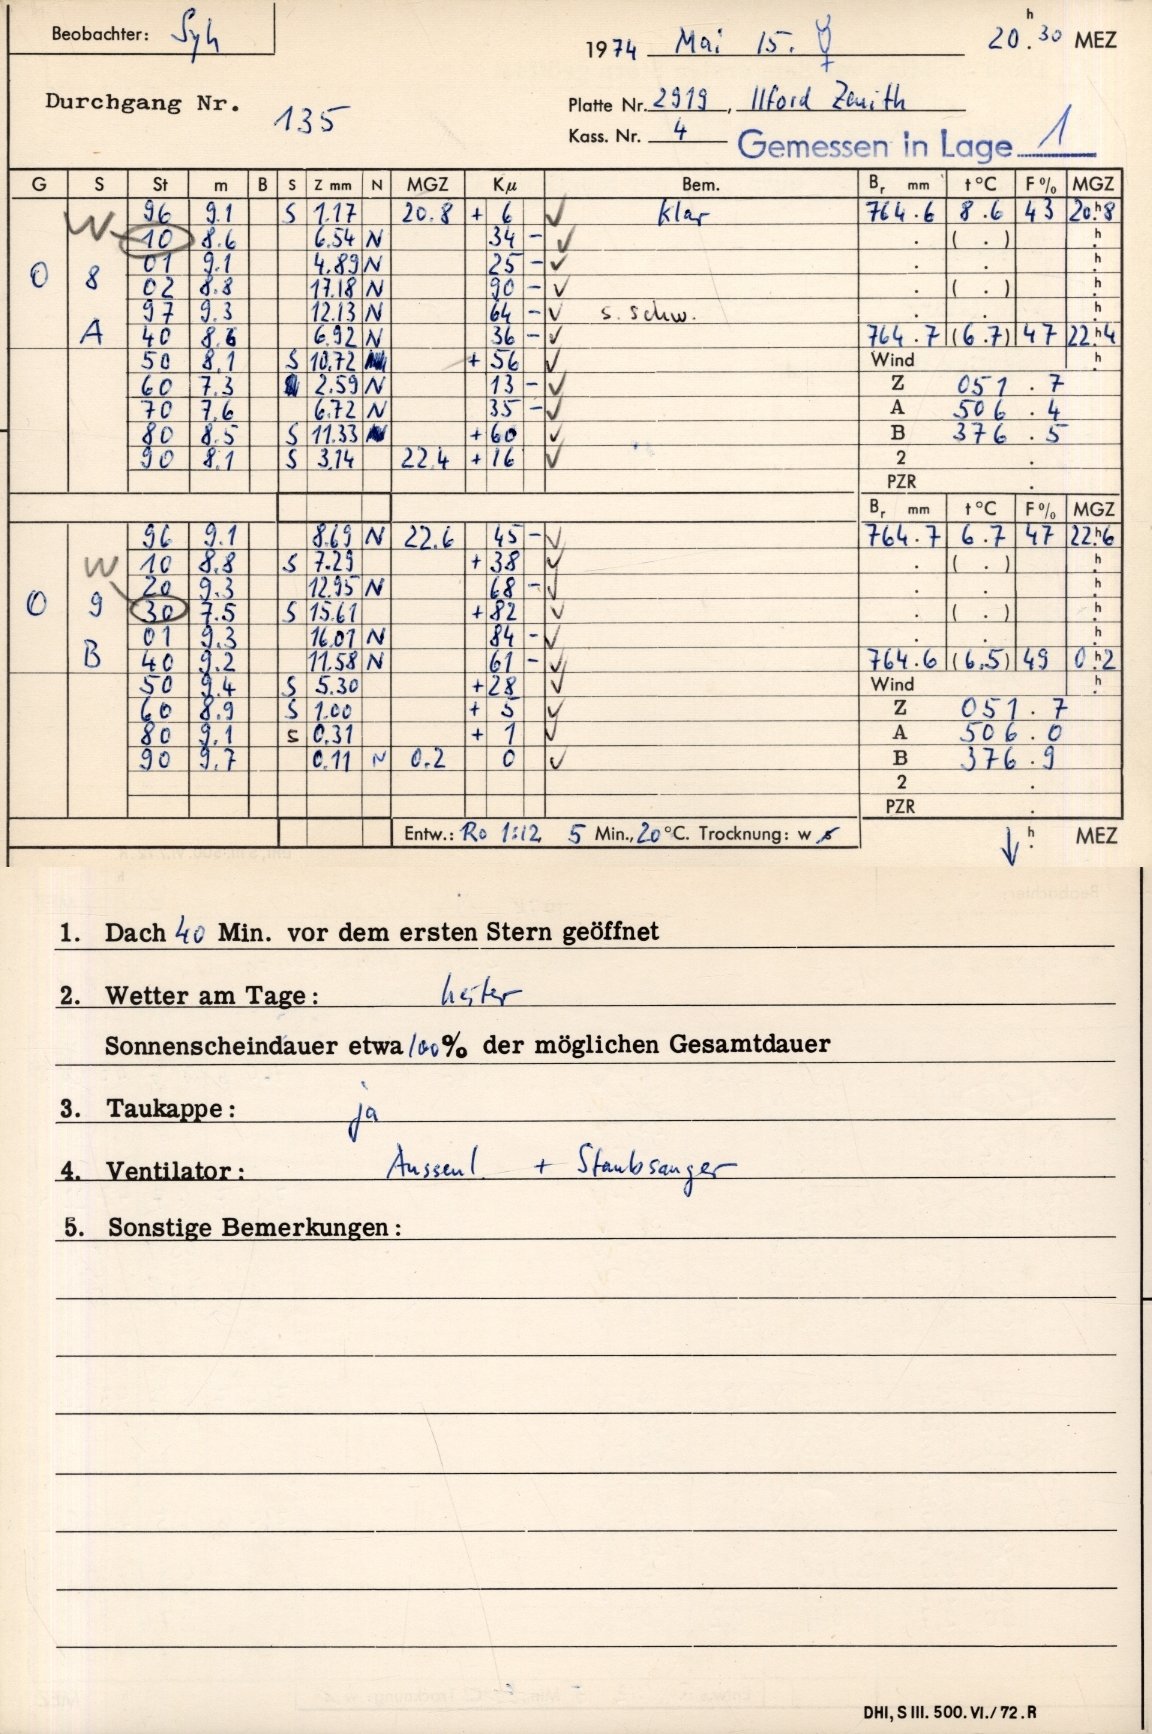 Beobachter: Syh
1974 Mai 15. ☿ 20h.30 MEZ
Durchgang Nr. 135
Platte Nr. 2919, Ilford Zenith
Kass. Nr. 4
Gemessen in Lage 1
G S St m B S Z mm N MGZ Kμ Bem. Br mm t °C F % MGZ
96 9.1 S 1.17 20.8 + 6 ✓ klar 764.6 8.6 43 20.h8
W 10 8.6 6.54 N 34 - ✓ . ( . ) h.
01 9.1 4.89 N 25 - ✓ . . h.
O 8 02 8.8 17.18 N 90 - ✓ . ( . ) h.
97 9.3 12.13 N 64 - ✓ s. schw. . . h.
A 40 8.6 6.92 N 36 - ✓ 764.7 (6.7) 47 22.h4
50 8.1 S 10.72 + 56 ✓ Wind h.
60 7.3 2.59 N 13 - ✓ Z 051.7
70 7.6 6.72 N 35 - ✓ A 506.4
80 8.5 S 11.33 + 60 ✓ B 376.5
90 8.1 S 3.14 22.4 + 16 ✓ 2 .
PZR .
Br mm t °C F % MGZ
96 9.1 8.69 N 22.6 45 - ✓ 764.7 6.7 47 22.h6
W 10 8.8 S 7.29 + 38 ✓ . ( . ) h.
20 9.3 12.95 N 68 - ✓ . . h.
O 9 30 7.5 S 15.61 + 82 ✓ . ( . ) h.
01 9.3 16.01 N 84 - ✓ . . h.
B 40 9.2 11.58 N 61 - ✓ 764.6 (6.5) 49 0.h2
50 9.4 S 5.30 + 28 ✓ Wind h.
60 8.9 S 1.00 + 5 ✓ Z 051.7
80 9.1 S 0.31 + 1 ✓ A 506.0
90 9.7 0.11 N 0.2 0 ✓ B 376.9
2 .
PZR .
Entw.: Ro 1:12 5 Min., 20 °C. Trocknung: w s ↓ h. MEZ
1. Dach 40 Min. vor dem ersten Stern geöffnet
2. Wetter am Tage: heiter
Sonnenscheindauer etwa 100% der möglichen Gesamtdauer
3. Taukappe: ja
4. Ventilator: Aussenl. + Staubsauger
5. Sonstige Bemerkungen:
DHI, S III. 500. VI./72. R